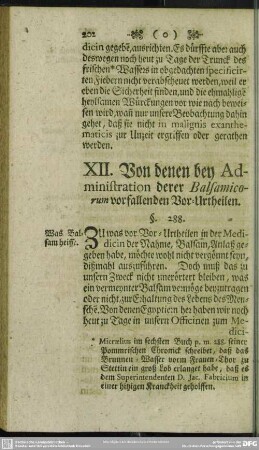 202 ❧ ( o ) ❧
dicin gegebē, ausrichten. Es dürffte aber auch
deswegen noch heut zu Tage der Trunck des
frischen* Wassers in obgedachten specificir-
ten Fiebern nicht verabscheuet werden, weil er
eben die Sicherheit finden, und die ehmahlige
heylsamen Würckungen vor wie nach bewei-
sen wird, wañ nur unsere Beobachtung dahin
gehet, daß sie nicht in malignis exanthe-
maticis zur Unzeit ergriffen oder gerathen
werden.
XII. Von denen bey Ad-
ministration derer Balsamico-
rum vorfallenden Vor-Urtheilen.
§. 288.
Was Bal-
sam heisse.
ZU was vor Vor-Urtheilen in der Medi-
dicin der Nahme, Balsam, Anlaß ge-
geben habe, möchte wohl nicht vergönnt seyn,
dißmahl auszuführen. Doch muß das zu
unsern Zweck nicht unerörtert bleiben, was
ein vermeynter Balsam vermöge beyzutragen
oder nicht, zur Erhaltung des Lebens des Men-
sche. Von denen Egyptiern her haben wir noch
heut zu Tage in unsern Officinen zum Me-
dici-
* Micrælius im sechsten Buch p. m. 288. seiner
Pommerischen Chronick schreibet, daß das
Brunnen-Wasser vorm Frauen-Thor zu
Stettin ein groß Lob erlanget habe, daß es
dem Superintendenten D. Jac. Fabricium in
einer hitzigen Kranckheit geholffen.